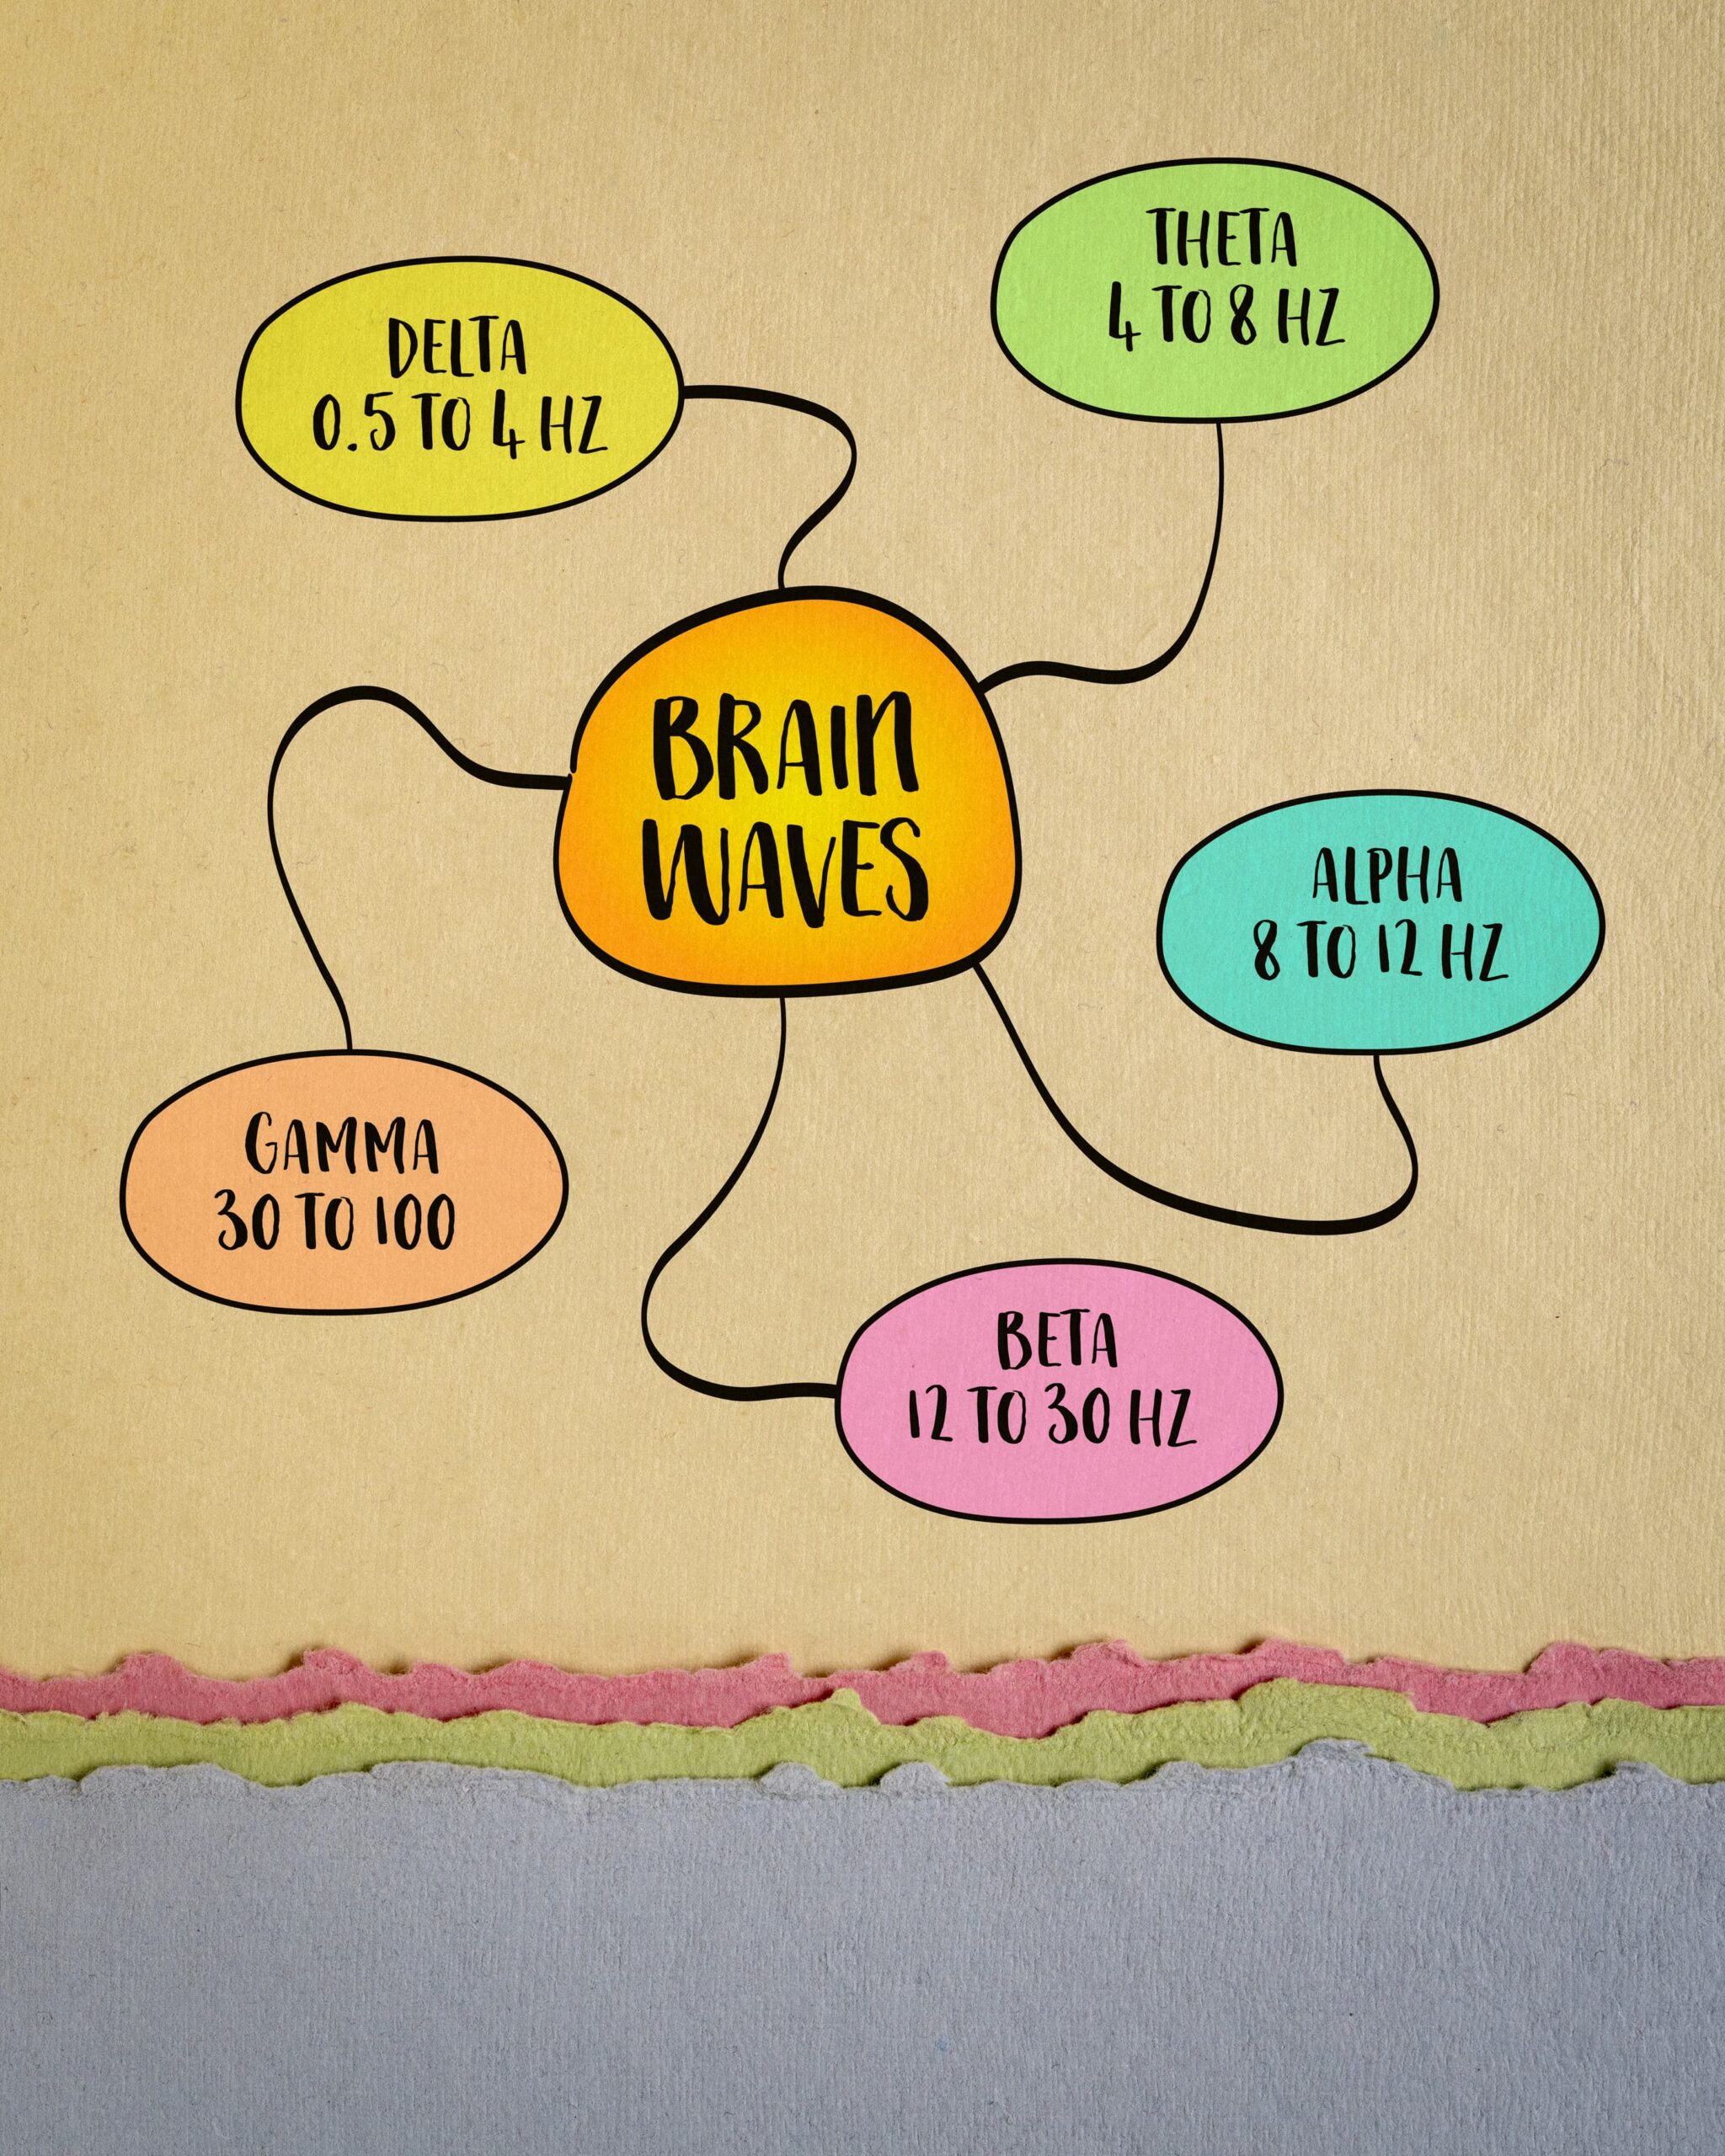 THETA
4 TO 8 HZ
DELTA
0.5 TO 4 HZ
BRAIN
WAVES
ALPHA
8 TO 12 HZ
GAMMA
30 TO 100
BETA
12 TO 30 HZ